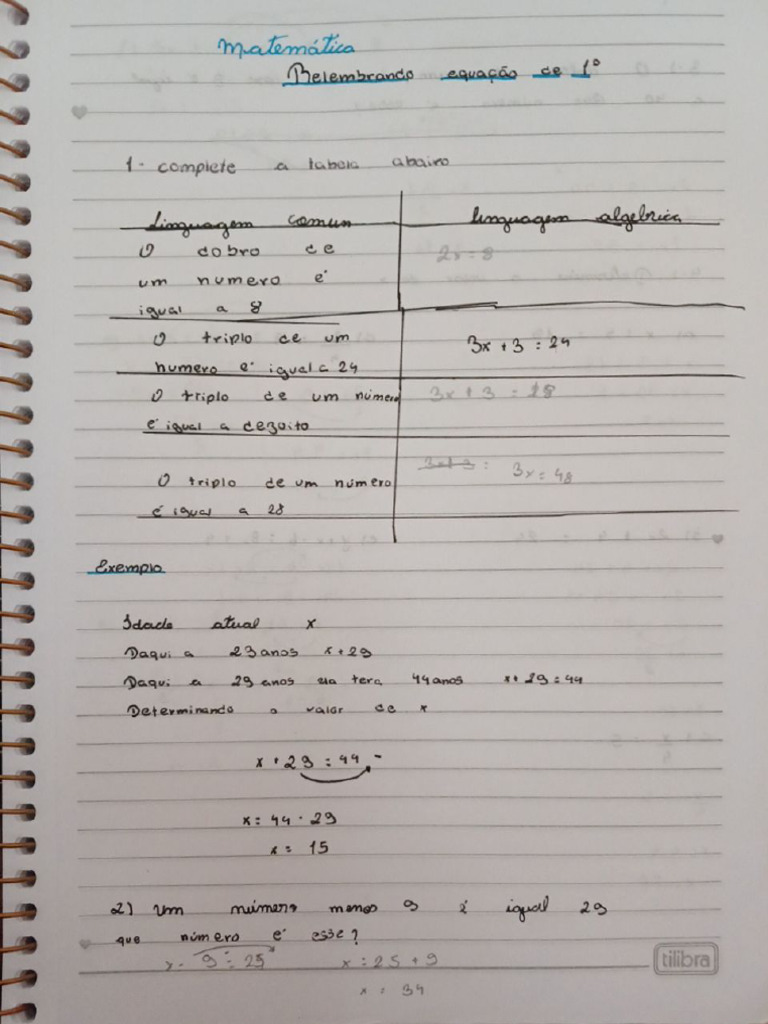 Matemática
Relembrando equação de 1º
1- complete a tabela abaixo
Linguagem comum linguagem algebrica
O dobro de
um numero é
igual a 8
2x = 8
O triplo de um
numero é igual a 24
3x + 3 = 24
O triplo de um número
é igual a dezoito
3x + 3 = 18
O triplo de um número
é igual a 28
3x = 48
Exemplo
Idade atual x
Daqui a 29 anos x + 29
Daqui a 29 anos ela tera 44 anos x + 29 = 44
Determinando o valor de x
x + 29 = 44 -
x = 44 - 29
x = 15
2) Um número menos 9 é igual 29
que número é esse?
x - 9 = 25 x = 25 + 9
x = 34
tilibra